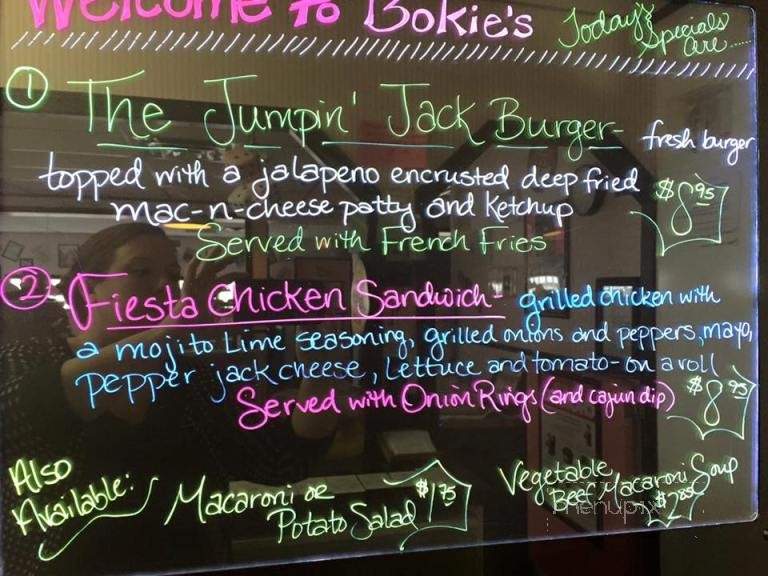 Welcome To Bokie's
Today's
Specials
are.....
① The Jumpin' Jack Burger- fresh burger
topped with a jalapeno encrusted deep fried
mac-n-cheese patty and Ketchup
$8.95
Served with French Fries
② Fiesta Chicken Sandwich- grilled chicken with
a mojito Lime seasoning, grilled onions and peppers, mayo,
pepper jack cheese, Lettuce and tomato- on a roll
Served with Onion Rings (and cajun dip)
$8.95
Also
Available:
Macaroni or
Potato Salad
$1.75
Vegetable
Beef Macaroni Soup
menupix